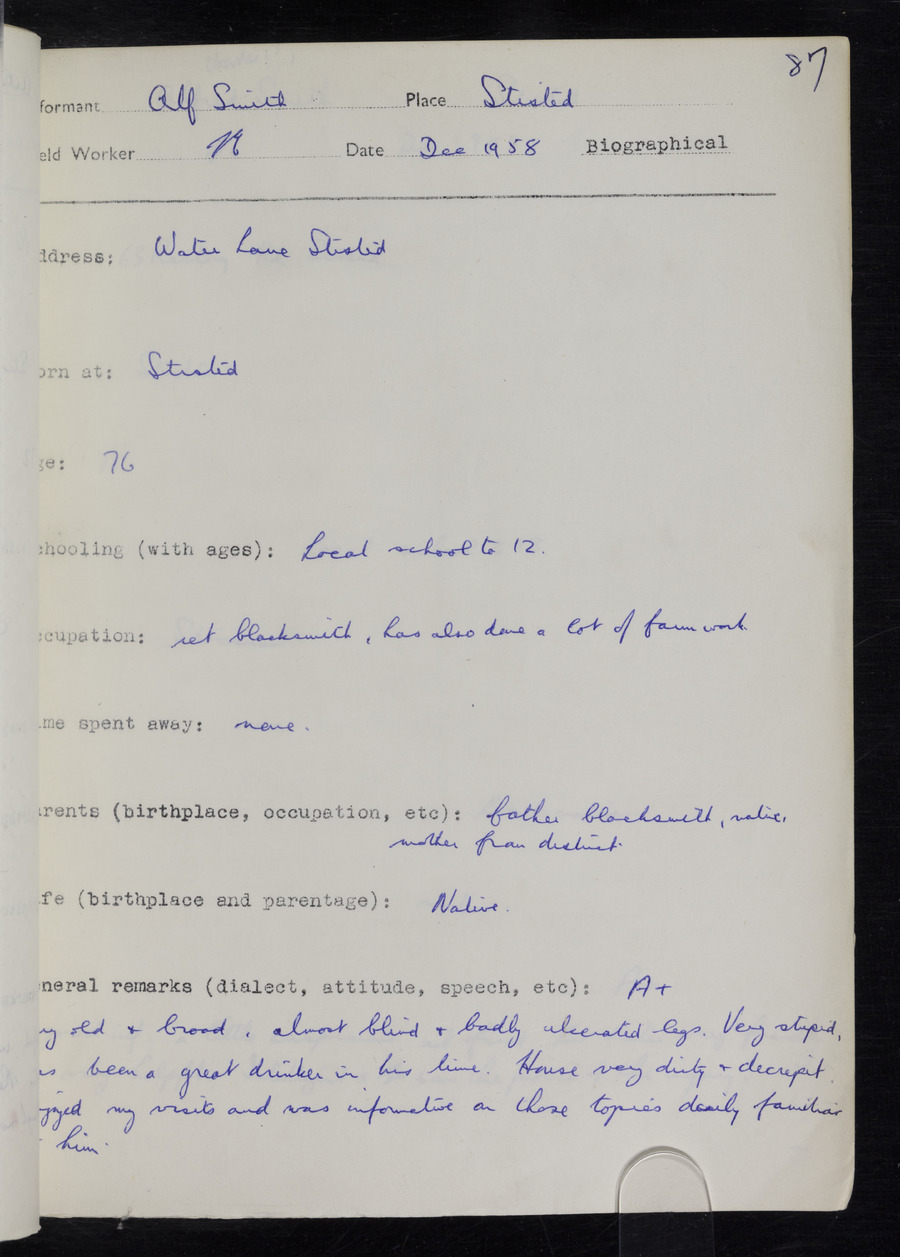 87
formant Alf Smith Place Stisted
eld Worker Date Dec 1958 Biographical
ddress; Water Lane Stisted
orn at: Stisted
ge: 76
chooling (with ages): Local school to 12.
ccupation: ret blacksmith, has also done a lot of farm work
me spent away: none.
rents (birthplace, occupation, etc): father blacksmith, native,
mother from district.
fe (birthplace and parentage): Native.
neral remarks (dialect, attitude, speech, etc): A+
ry old + broad, almost blind + badly ulcerated legs. Very stupid,
as been a great drinker in his time. House very dirty + decrepit.
njoyed my visits and was informative on those topics daily familiar
him.